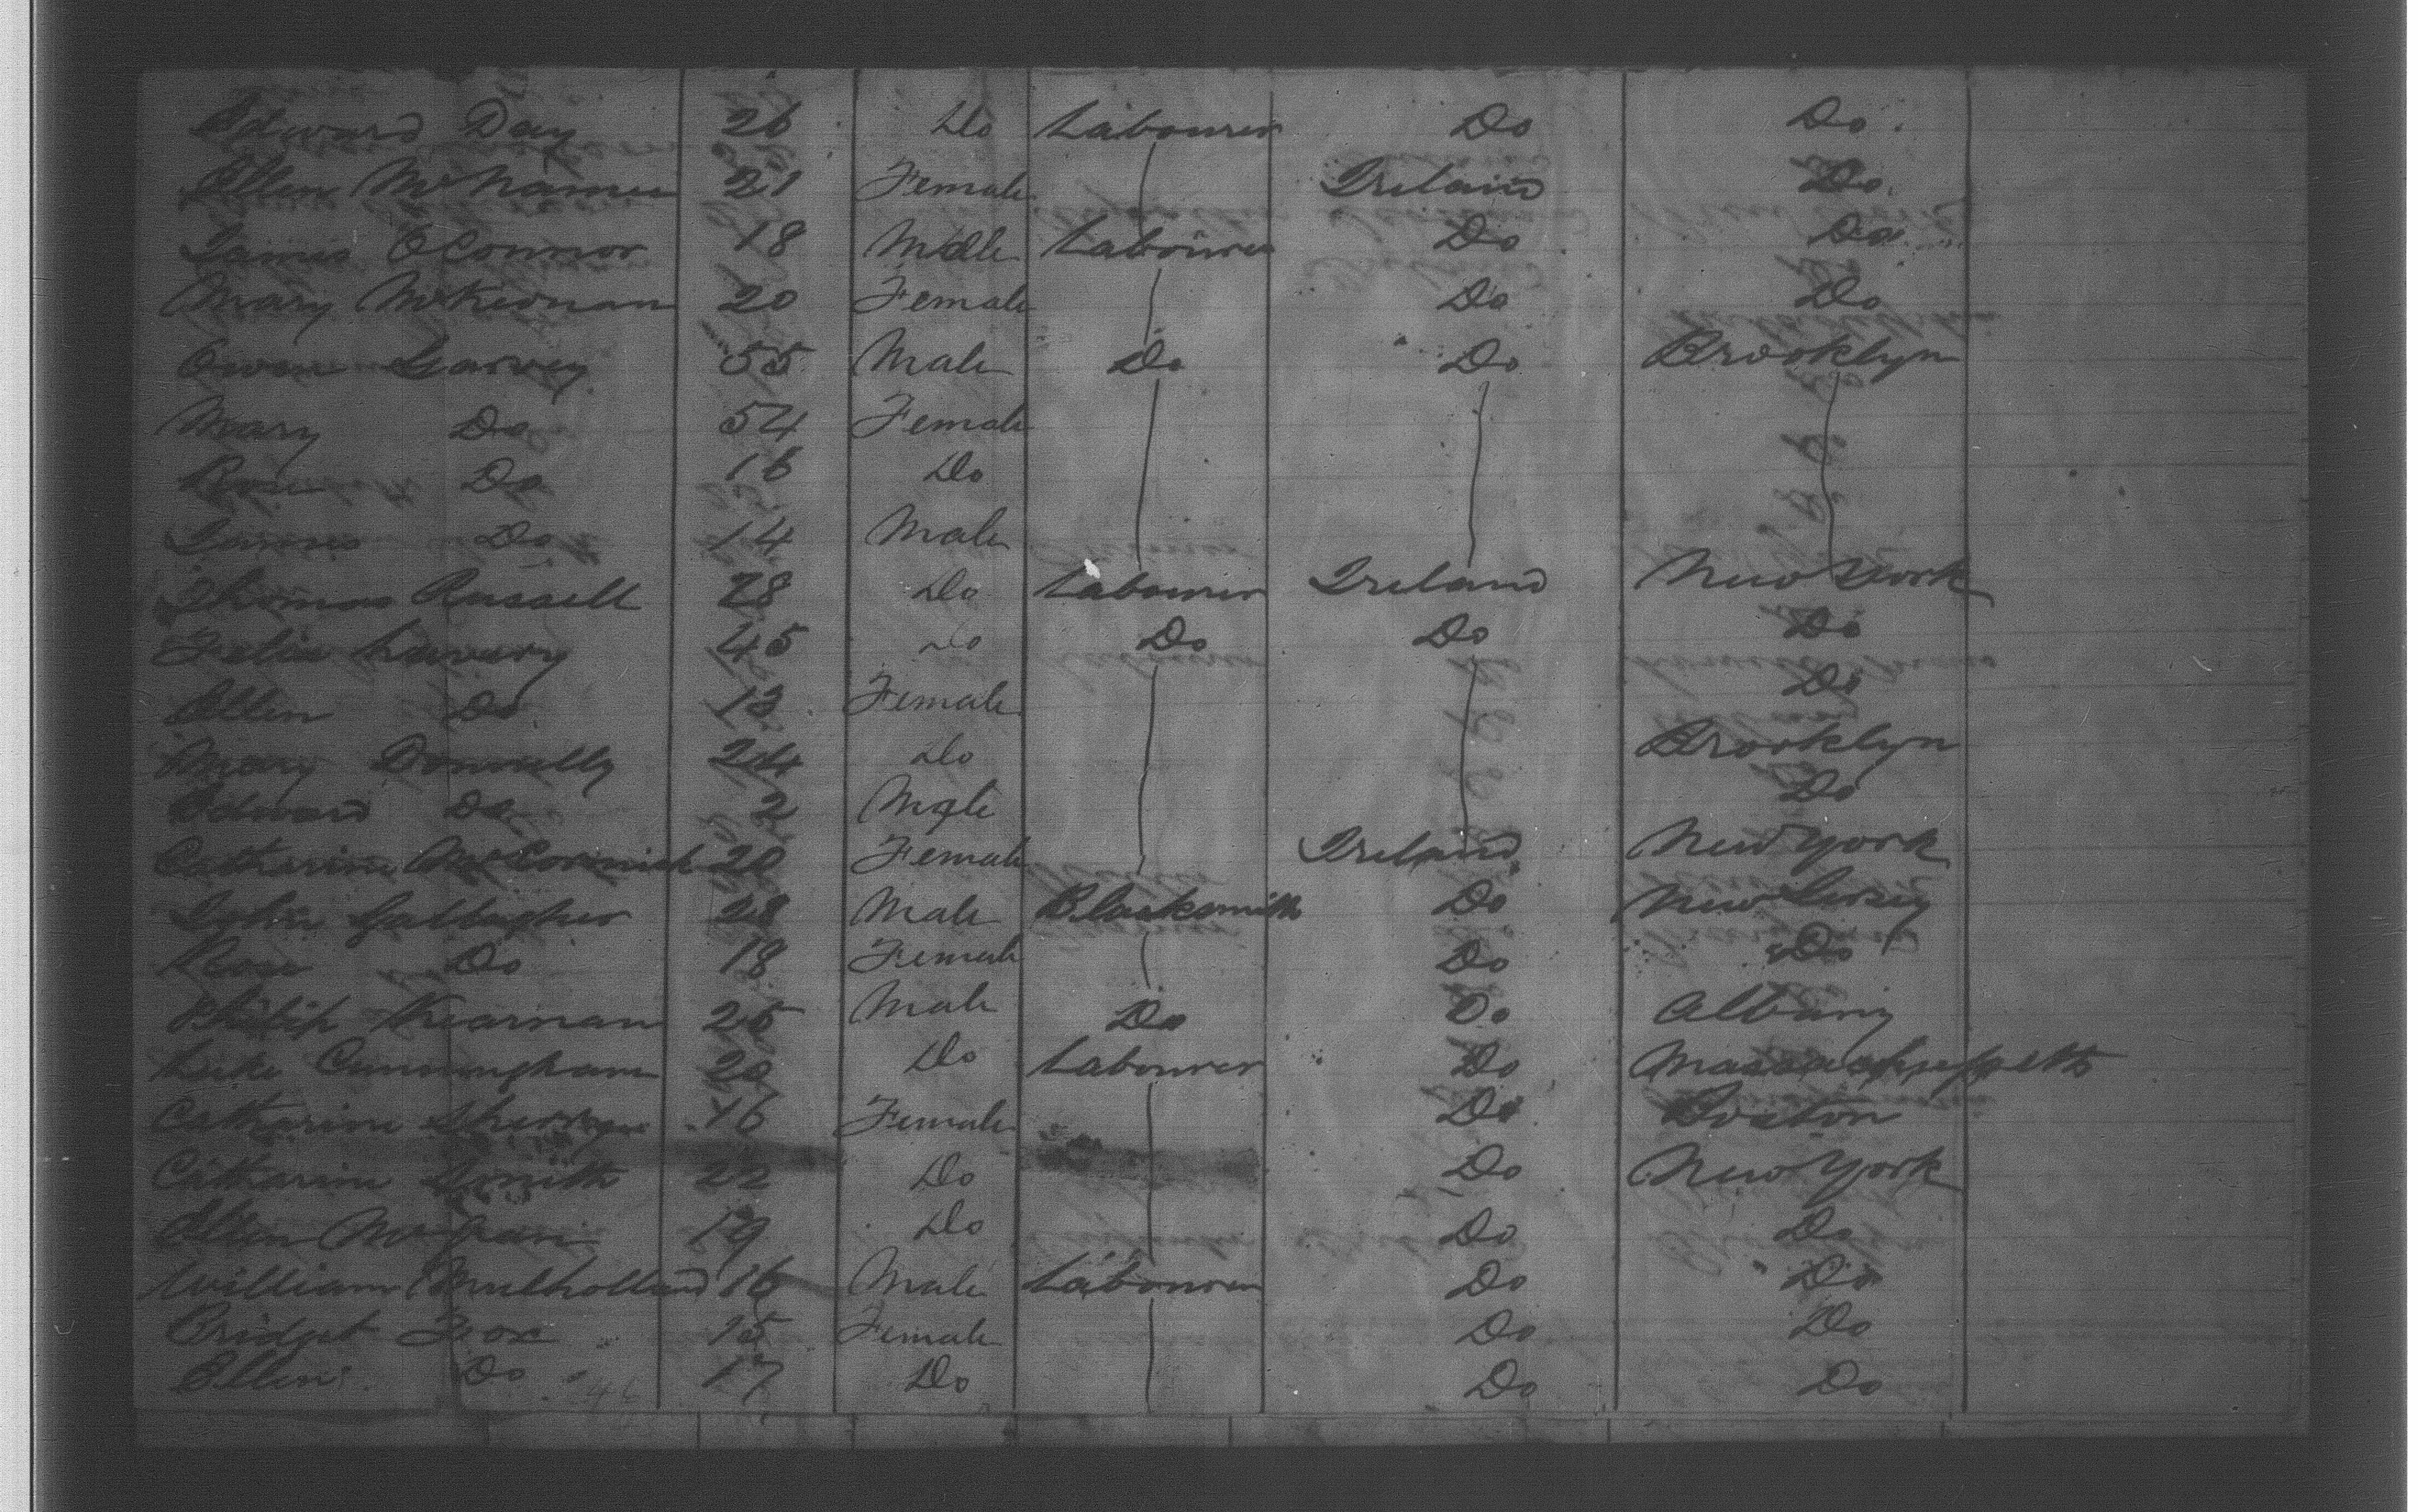 Edward Day 26 Do Labourer Do Do
Ellen McNamee 21 Female Ireland Do
James OConnor 18 Male Labourer Do Do
Mary McKernan 20 Female Do Do
Owen Garvey 55 Male Do Do Brooklyn
Mary Do 54 Female
Rose Do 16 Do
James Do 14 Male
Thomas Russell 28 Do Labourer Ireland New York
Felix Lavery 45 Do Do Do Do
Ellen Do 13 Female Do
Mary Donnelly 24 Do Brooklyn
Edward Do 2 Male Do
Catharine McCormick 20 Female Ireland New York
John Gallagher 28 Male Blacksmith Do New Jersey
Rose Do 18 Female Do Do
Philip Kearnan 25 Male Do Do Albany
Luke Cunningham 20 Do Labourer Do Massachussetts
Catharine Sherry 16 Female Do Boston
Catharine Smith 22 Do Do New York
Ellen 19 Do Do Do
William Mulholland 16 Male Labourer Do Do
Bridget Fox 15 Female Do Do
Ellen Do 17 Do Do Do